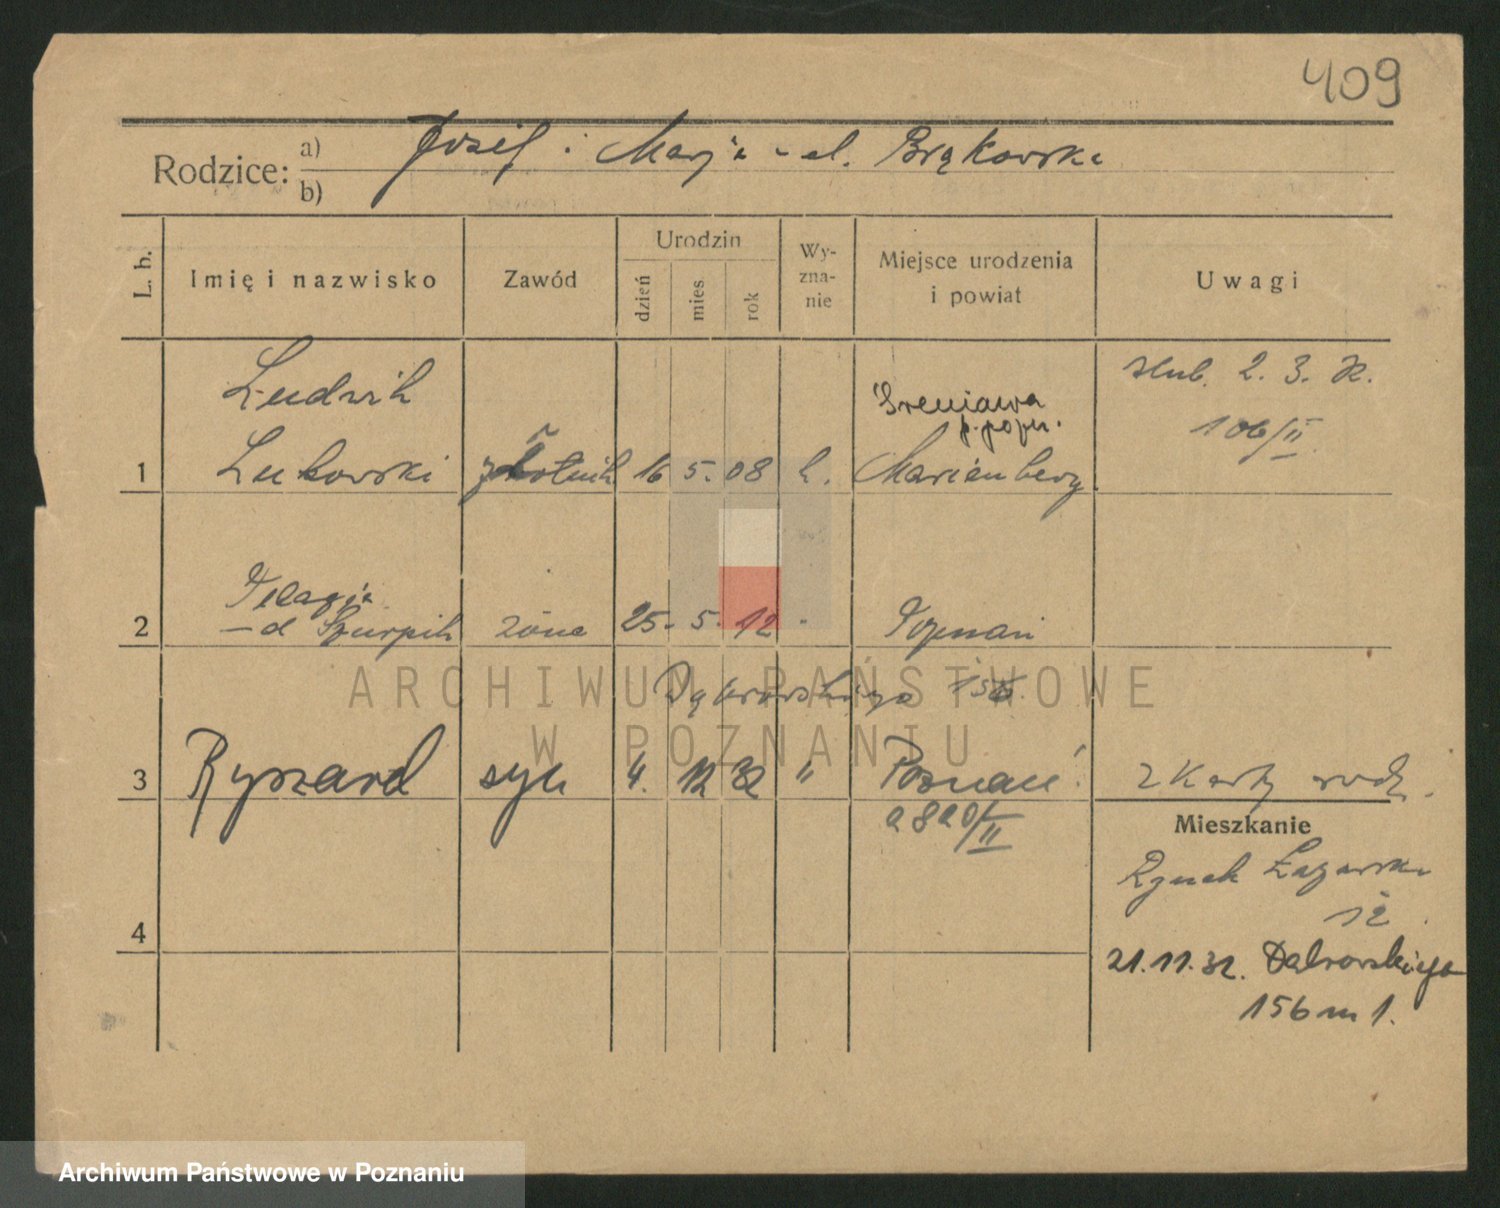 409
Rodzice: a) Józef i Marja - d. Brąkowska
b)
L. b.
Imię i nazwisko
Zawód
Urodzin
dzień
mies
rok
Wy-
zna-
nie
Miejsce urodzenia
i powiat
Uwagi
Ludwik
Śreniawa
ślub. 2. 3. 32.
106/II
1 Lukowski 16 5. 08 k. Marienberg
Pelagia
2 - d Szurpik żona 25. 5. 12 Poznań
Dąbrowskiego 156.
3 Ryszard syn 4. 12 32 " Poznań 2 Karty rodz.
2820/II
Mieszkanie
Rynek Łazarski
12
4
21.11.32. Dąbrowskiego
156 m 1.
ARCHIWUM PAŃSTWOWE
W POZNANIU
Archiwum Państwowe w Poznaniu